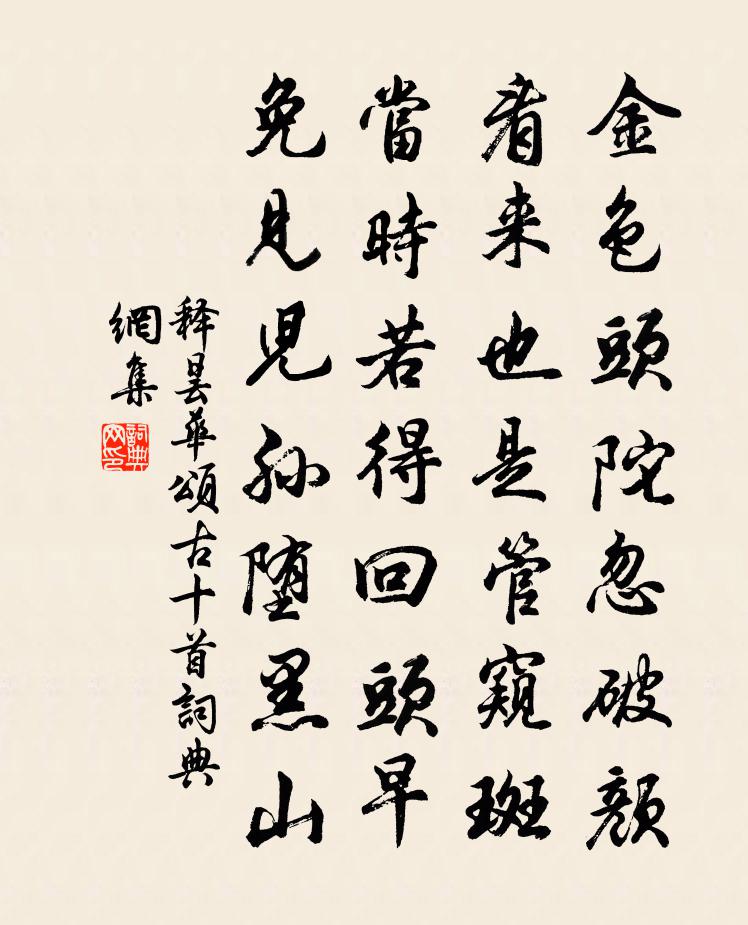 金色頭陀忽破顔
看来也是管窺斑
當時若得回頭早
免見児孫堕黒山
释曇華頌古十首詞典
網集
詞典
网印